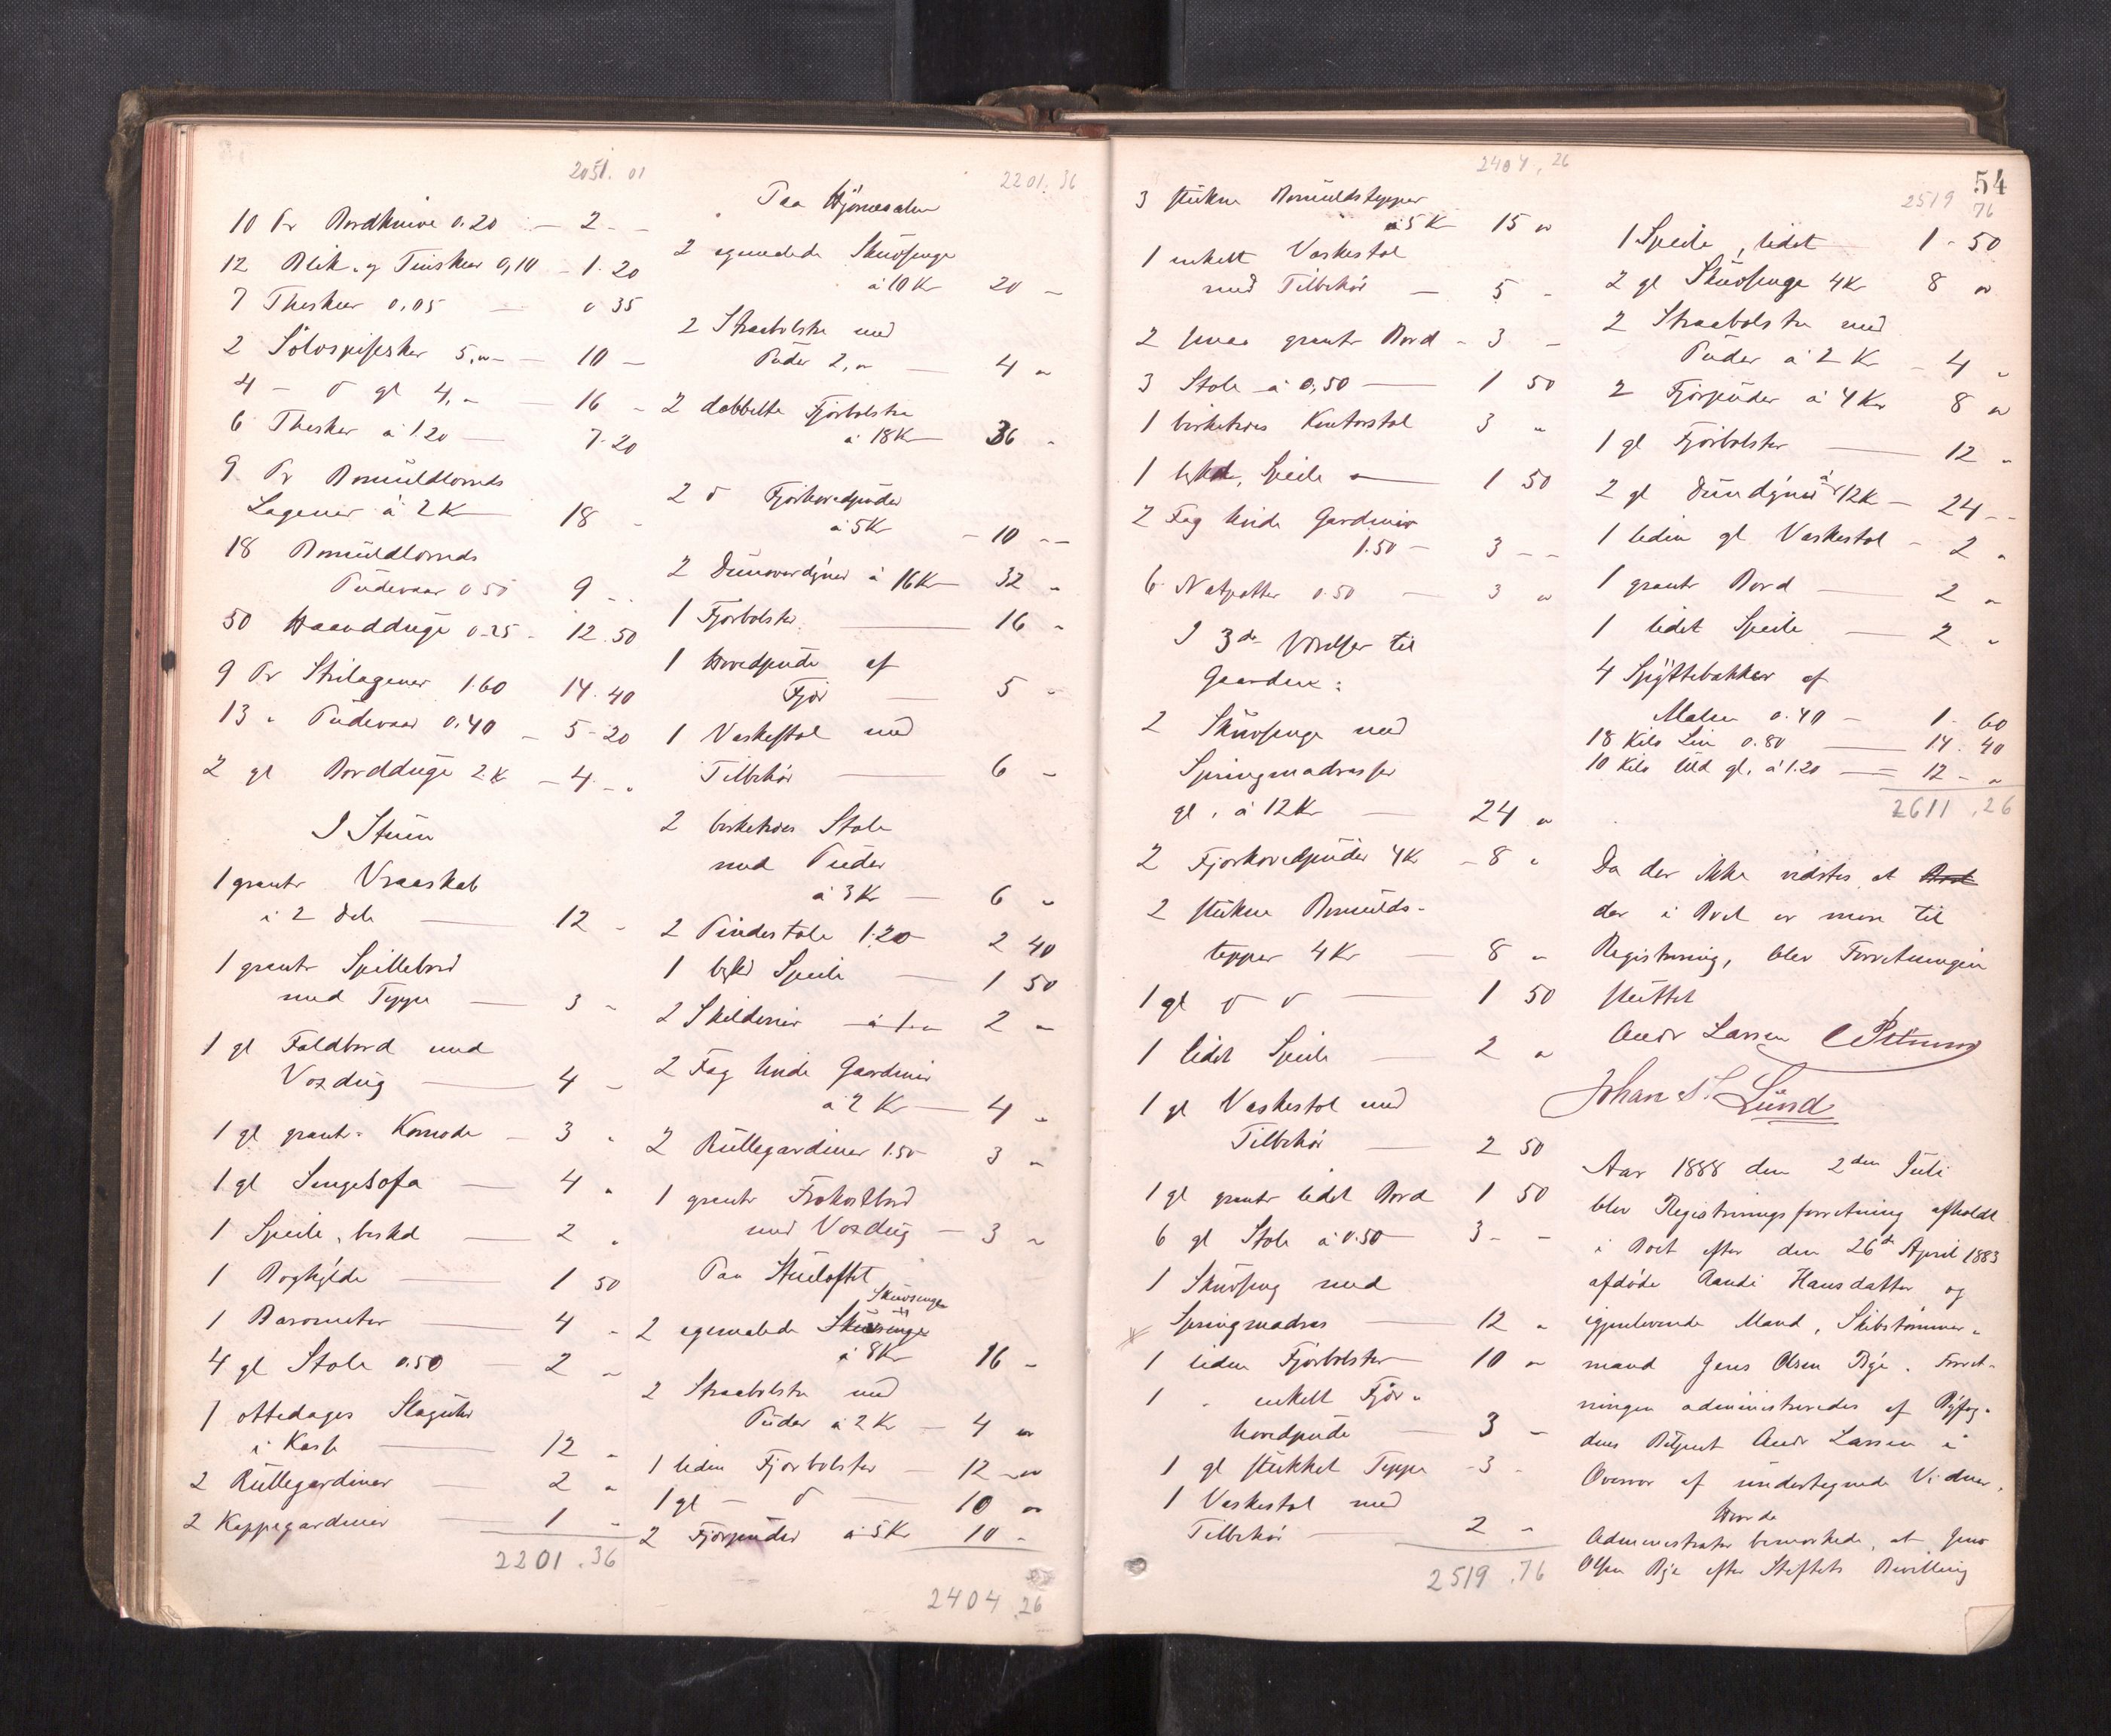 2051. 01
10 Pr Bordknive 0.20 — 2 - -
12 Blik- og Tinskeer 0,10 - 1. 20
7 Theskeer 0,05 — 0 35
2 Sølvspiseskeer 5,- — 10 -
4 - d gl 4,- — 16 -
6 Theskeer à 1.20 — 7.20
9 Pr Bomuldlerreds
Lagener à 2 K — 18 -
18 Bomuldlerreds
Pudevaar 0 50 9 - -
50 Haandduge 0.25 - 12.50
9 Pr Strilagener 1.60 14.40
13 " Pudevaar 0.40 - 5-20
2 gl Bordduge 2 K - 4 - "
I Stuen
1 grantr Vraaskab
i 2 Dele — 12 -
1 grantr Spillebord
med Teppe — 3 -
1 gl Foldbord med
Voxdug — 4 -
1 gl grantr Komode - 3 "
1 gl Sengesofa — 4 "
1 Speile, beskd — 2 "
1 Boghylde — 1 50
1 Barometer — 4 -
4 gl Stole 0.50 — 2 "
1 ottedages Slaguhr
i Kasse — 12 "
2 Rullegardiner — 2 "
2 Kappegardiner — 1 -
2201.36
2201.36
Paa Hjørnesalen
2 egemalede Skuvsenge
à 10 Kr 20 -
2 Straabolstre med
Puder 2,- — 4 "
2 dobbelte Fjørbolstre
à 18 K — 36 "
2 d Fjørhovedpuder
à 5 K - 10 - -
2 Dunoverdyner à 16 K — 32 "
1 Fjørbolster — 16 "
1 Hovedpude af
Fjør — 5 "
1 Vaskestol med
Tilbehør — 6 -
2 birketræes Stole
med Puder
à 3 Kr — 6 "
2 Pindestole 1.20 2 40
1 beskd Speile — 1 50
2 Skilderier — à 1.- 2 "
2 Fag hvide Gardiner
à 2 Kr — 4 "
2 Rullegardiner 1.50 3 "
1 grantr Frokostbord
med Voxdug — 3 "
Paa Stueloftet
Skuvsenge
2 egemalede Skuvsenge
à 8 Kr 16 -
2 Straabolstre med
Puder à 2 Kr — 4 "
1 liden Fjørbolster — 12 - "
1 gl — d — 10 "
2 Fjørpuder à 5 Kr 10 -
2404.26
2404.26
3 stukne Bomuldstepper
à 5 K 15 "
1 enkelt Vaskestol
med Tilbehør — 5 -
2 smaa grantr Bord - 3 -
3 Stole à 0,50 — 1 50
1 birketræes Kontorstol 3 "
1 beskd. Speile — 1 50
2 Fag hvide Gardiner
1.50 - 3 - -
6 Natpotter 0.50 — 3 "
I 3de Værelser til
Gaarden:
2 Skuvsenge med
Springmadrasser
gl. à 12 Kr — 24 "
2 Fjørhovedpuder 4 Kr - 8 "
2 stukne Bomulds-
tepper 4 Kr — 8 "
1 gl d d — 1 50
1 lidet Speile — 2 "
1 gl Vaskestol med
Tilbehør — 2 50
1 gl grantr lidet Bord 1 50
6 gl Stole à 0.50 — 3 - -
1 Skuvseng med
Springmadras — 12 "
1 liden Fjørbolster — 10 "
1 " enkelt Fjør-
hovedpude — 3 -
1 gl stukket Teppe - 3 -
1 Vaskestol med
Tilbehør — 2 "
2519.76
54
2519 76
1 Speile, lidet 1 - 50
2 gl Skuvsenge 4 Kr 8 "
2 Straabolstre med
Puder à 2 K - 4 "
2 Fjørpuder à 4 Kr 8 "
1 gl Fjørbolster — 12 "
2 gl Dundyner à 12 K — 24 - -
1 liden gl Vaskestol - 2 "
1 grantr Bord — 2 "
1 lidet Speile — 2 "
4 Spyttebakker af
Malm 0.40 - 1 - 60
18 Kilo Lin 0.80 — 14.40
10 Kilo Uld gl. à 1.20 — 12 - "
2611.26
Da der ikke vidstes at
der i Boet er mere til
Registrering, blev Forretningen
sluttet
Andr Larsen
Johan S. Lund
Aar 1888 den 2den Juli
blev Registreringsforretning afholdt
i Boet efter den 26de April 1883
afdøde Randi Hansdatter og
igjenlevende Mand, Skibstømmer-
mand Jens Olsen Bye. Forret-
ningen administreredes af Byfog-
dens Betjent Andr Larsen i
Overvær af undertegnede Vidner.
Administrator bemærkede, at Jens
Olsen Bye efter Stiftets Bevilling